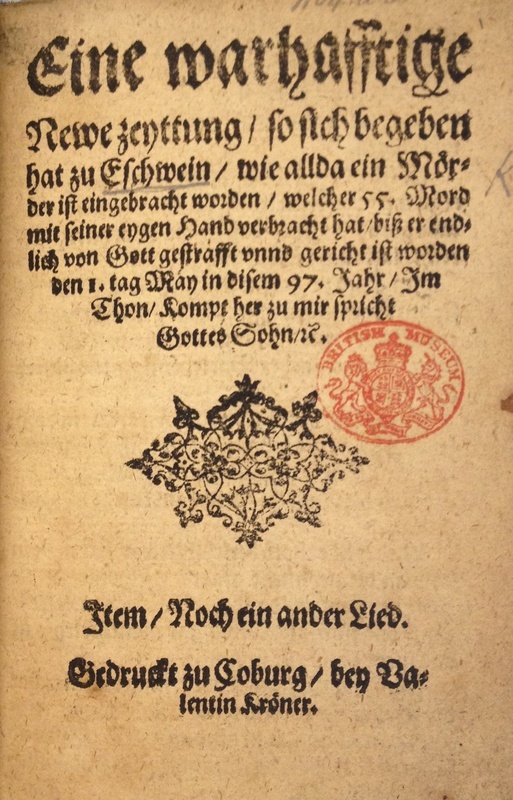 Eine warhafftige
Newe zeyttung / so sich begeben
hat zu Eschwein / wie allda ein Mör⸗
der ist eingebracht worden / welcher 55. Mord
mit seiner eygen Hand verbracht hat / biß er end⸗
lich von Gott gestrafft vnnd gericht ist worden
den 1. tag May in disem 97. Jahr / Im
Thon / Kompt her zu mir spricht
Gottes Sohn / ꝛc.
BRITISH MUSEUM
Item / Noch ein ander Lied.
Gedruckt zu Coburg / bey Va⸗
lentin Kröner.